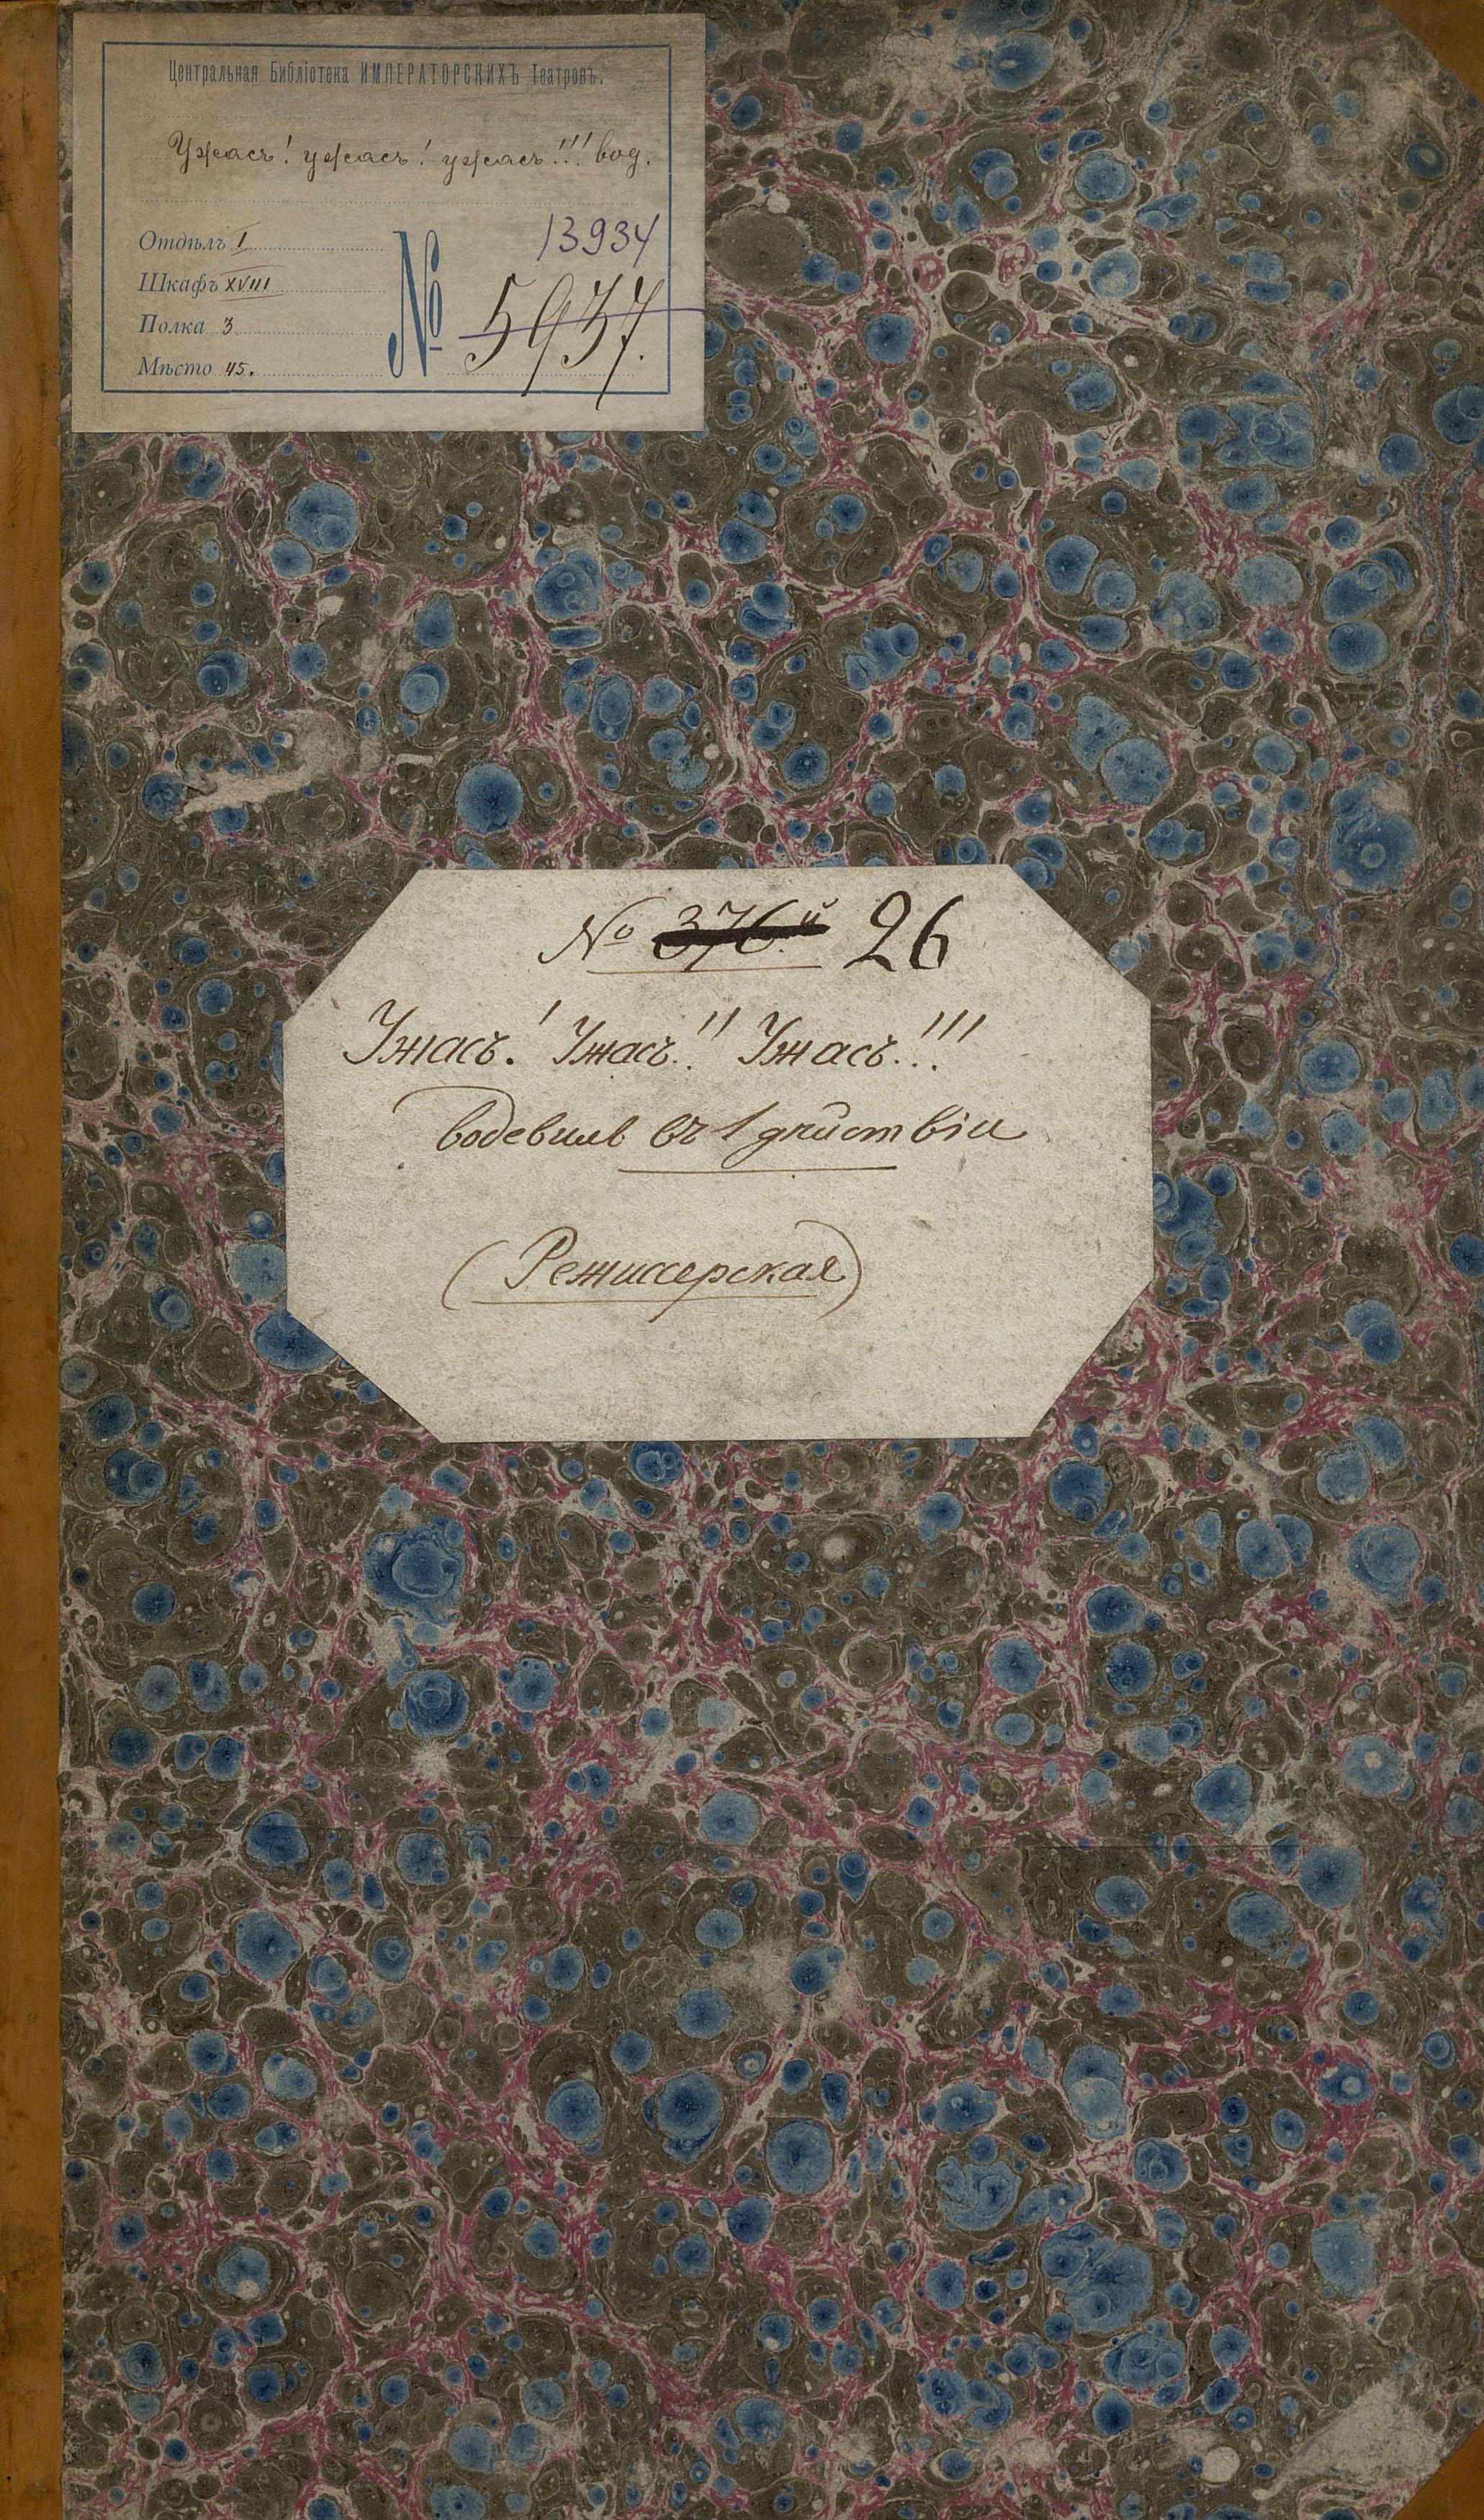 Центральная Библіотека ИМПЕРАТОРСКИХЪ Театровъ.
Ужасъ! ужасъ! ужасъ!!! вод.
Отдѣлъ I
Шкафъ XVIII
Полка 3
Мѣсто 45.
№ 13934
5937.
№ 376.й 26
Ужасъ! Ужасъ!! Ужасъ!!!
водевиль въ 1 дѣйствіи
(Режиссерская)